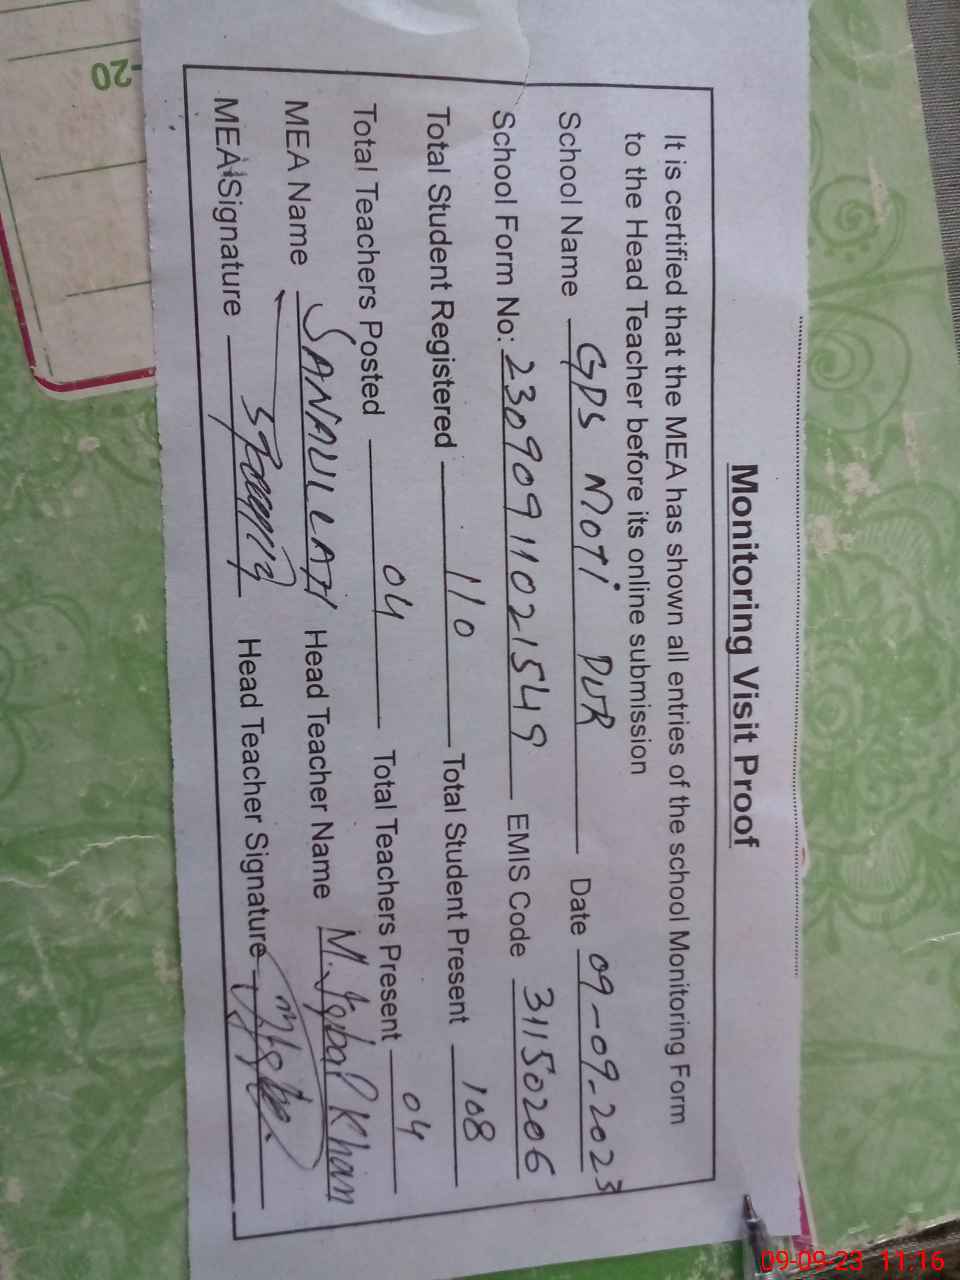 Monitoring Visit Proof
It is certified that the MEA has shown all entries of the school Monitoring Form
to the Head Teacher before its online submission
School Name GPS MOTI DUR Date 09-09-2023
School Form No: 23090911021549 EMIS Code 31150206
Total Student Registered 110 Total Student Present 108
Total Teachers Posted 04 Total Teachers Present 04
MEA Name SANAULLAH Head Teacher Name M. Iqbal Khan
MEA Signature Head Teacher Signature
-20
09-09-23 11:16